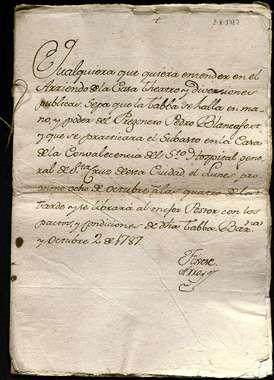 2-X-1787
Qualquiera que quiera entender en el
Arriendo de la Casa Theatro y Diversiones
publicas. Sepa que la tabba se halla en ma-
no, y poder del Pregonero Pedro Blancafort
y que se practicará el Subasto en la Casa
de la Convalecencia del Sto. Hospital gene-
ral de Sta. Cruz de esta Ciudad el Lunes pro-
ximo ocho de Octubre a las quatro de la
tarde y se librará al mejor Postor con los
pactos, y condiciones de dha tabba. Barna
y Octubre 2 de 1787.